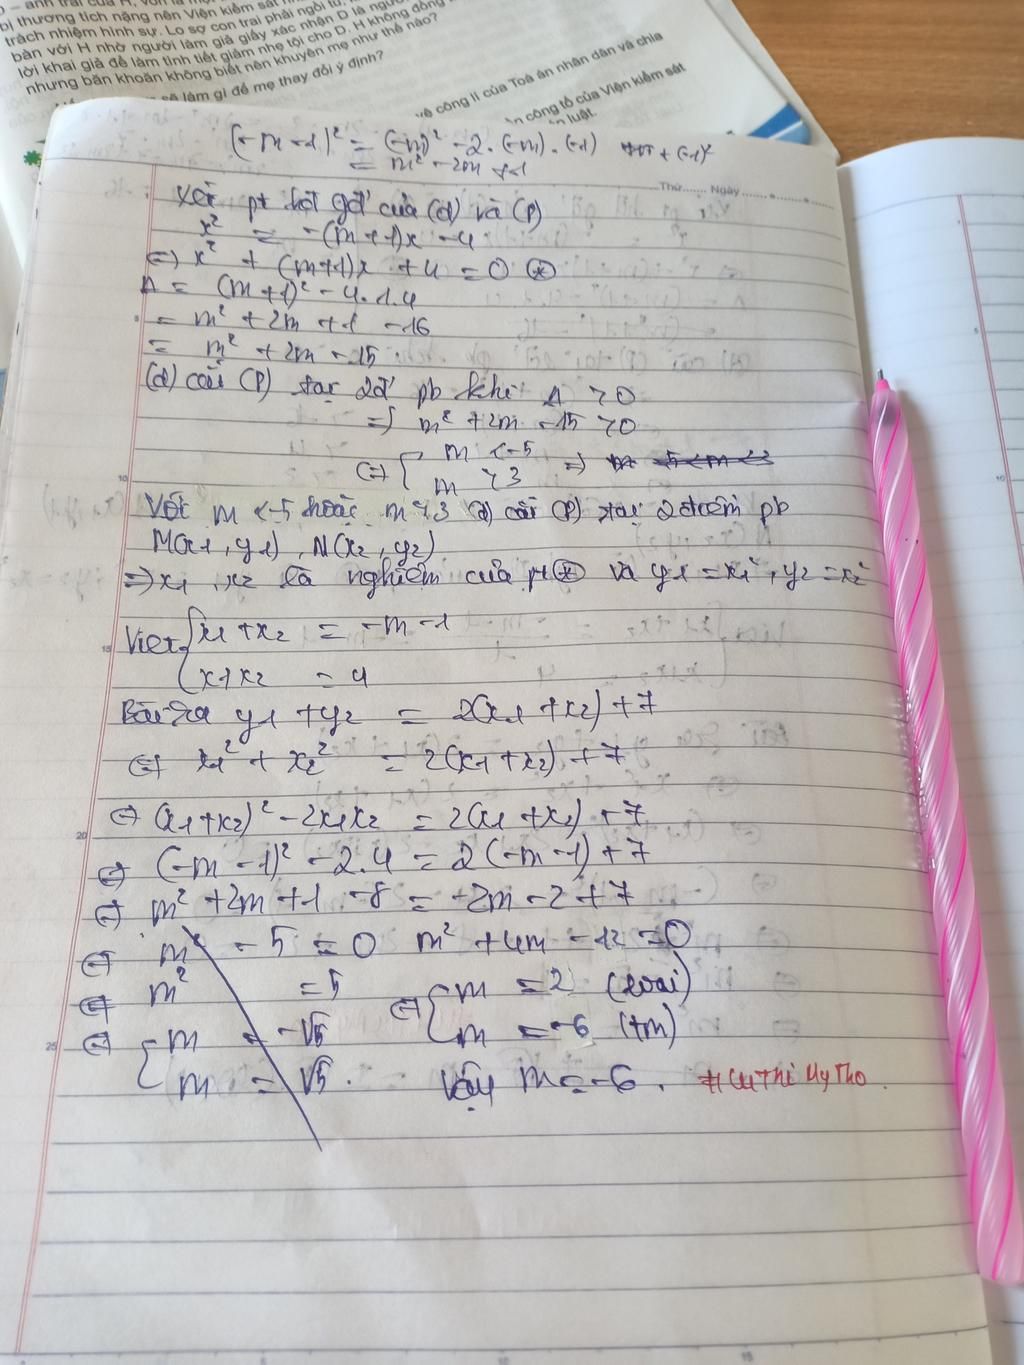 anh trai của H, vốn là
bị thương tích nặng nên Viện kiểm sát
trách nhiệm hình sự. Lo sợ con trai phải ngồi tù,
bàn với H nhờ người làm giả giấy xác nhận D là người
lời khai giả để làm tình tiết giảm nhẹ tội cho D. H không đồng
nhưng băn khoăn không biết nên khuyên mẹ như thế nào?
sẽ làm gì để mẹ thay đổi ý định?
vệ công lí của Toà án nhân dân và chia
công tố của Viện kiểm sát
luật.
(-m-1)² = (-m)² - 2.(-m).(-1) + (-1)²
= m² - 2m + 1
Thứ....... Ngày
Xét pt hđ gđ của (d) và (P)
x² = -(m+1)x - 4
⇔ x² + (m+1)x + 4 = 0 (*)
Δ = (m+1)² - 4.1.4
= m² + 2m + 1 - 16
= m² + 2m - 15
(d) cắt (P) tại 2đ' pb khi Δ > 0
⇒ m² + 2m - 15 > 0
⇔ { m < -5
m > 3 ⇒ m -5<m<3
Với m < -5 hoặc m > 3 (d) cắt (P) tại 2 điểm pb
M(x1, y1), N(x2, y2)
⇒ x1, x2 là nghiệm của pt (*) và y1 = x1², y2 = x2²
Viet { x1 + x2 = -m - 1
x1x2 = 4
Bài ra y1 + y2 = 2(x1 + x2) + 7
⇔ x1² + x2² = 2(x1 + x2) + 7
⇔ (x1 + x2)² - 2x1x2 = 2(x1 + x2) + 7
⇔ (-m - 1)² - 2.4 = 2(-m - 1) + 7
⇔ m² + 2m + 1 - 8 = -2m - 2 + 7
⇔ m² - 5 = 0 m² + 4m - 12 = 0
⇔ m² = 5 ⇔ { m = 2 (loại)
⇔ { m = -√5 m = -6 (tm)
m = √5. Vậy m = -6.